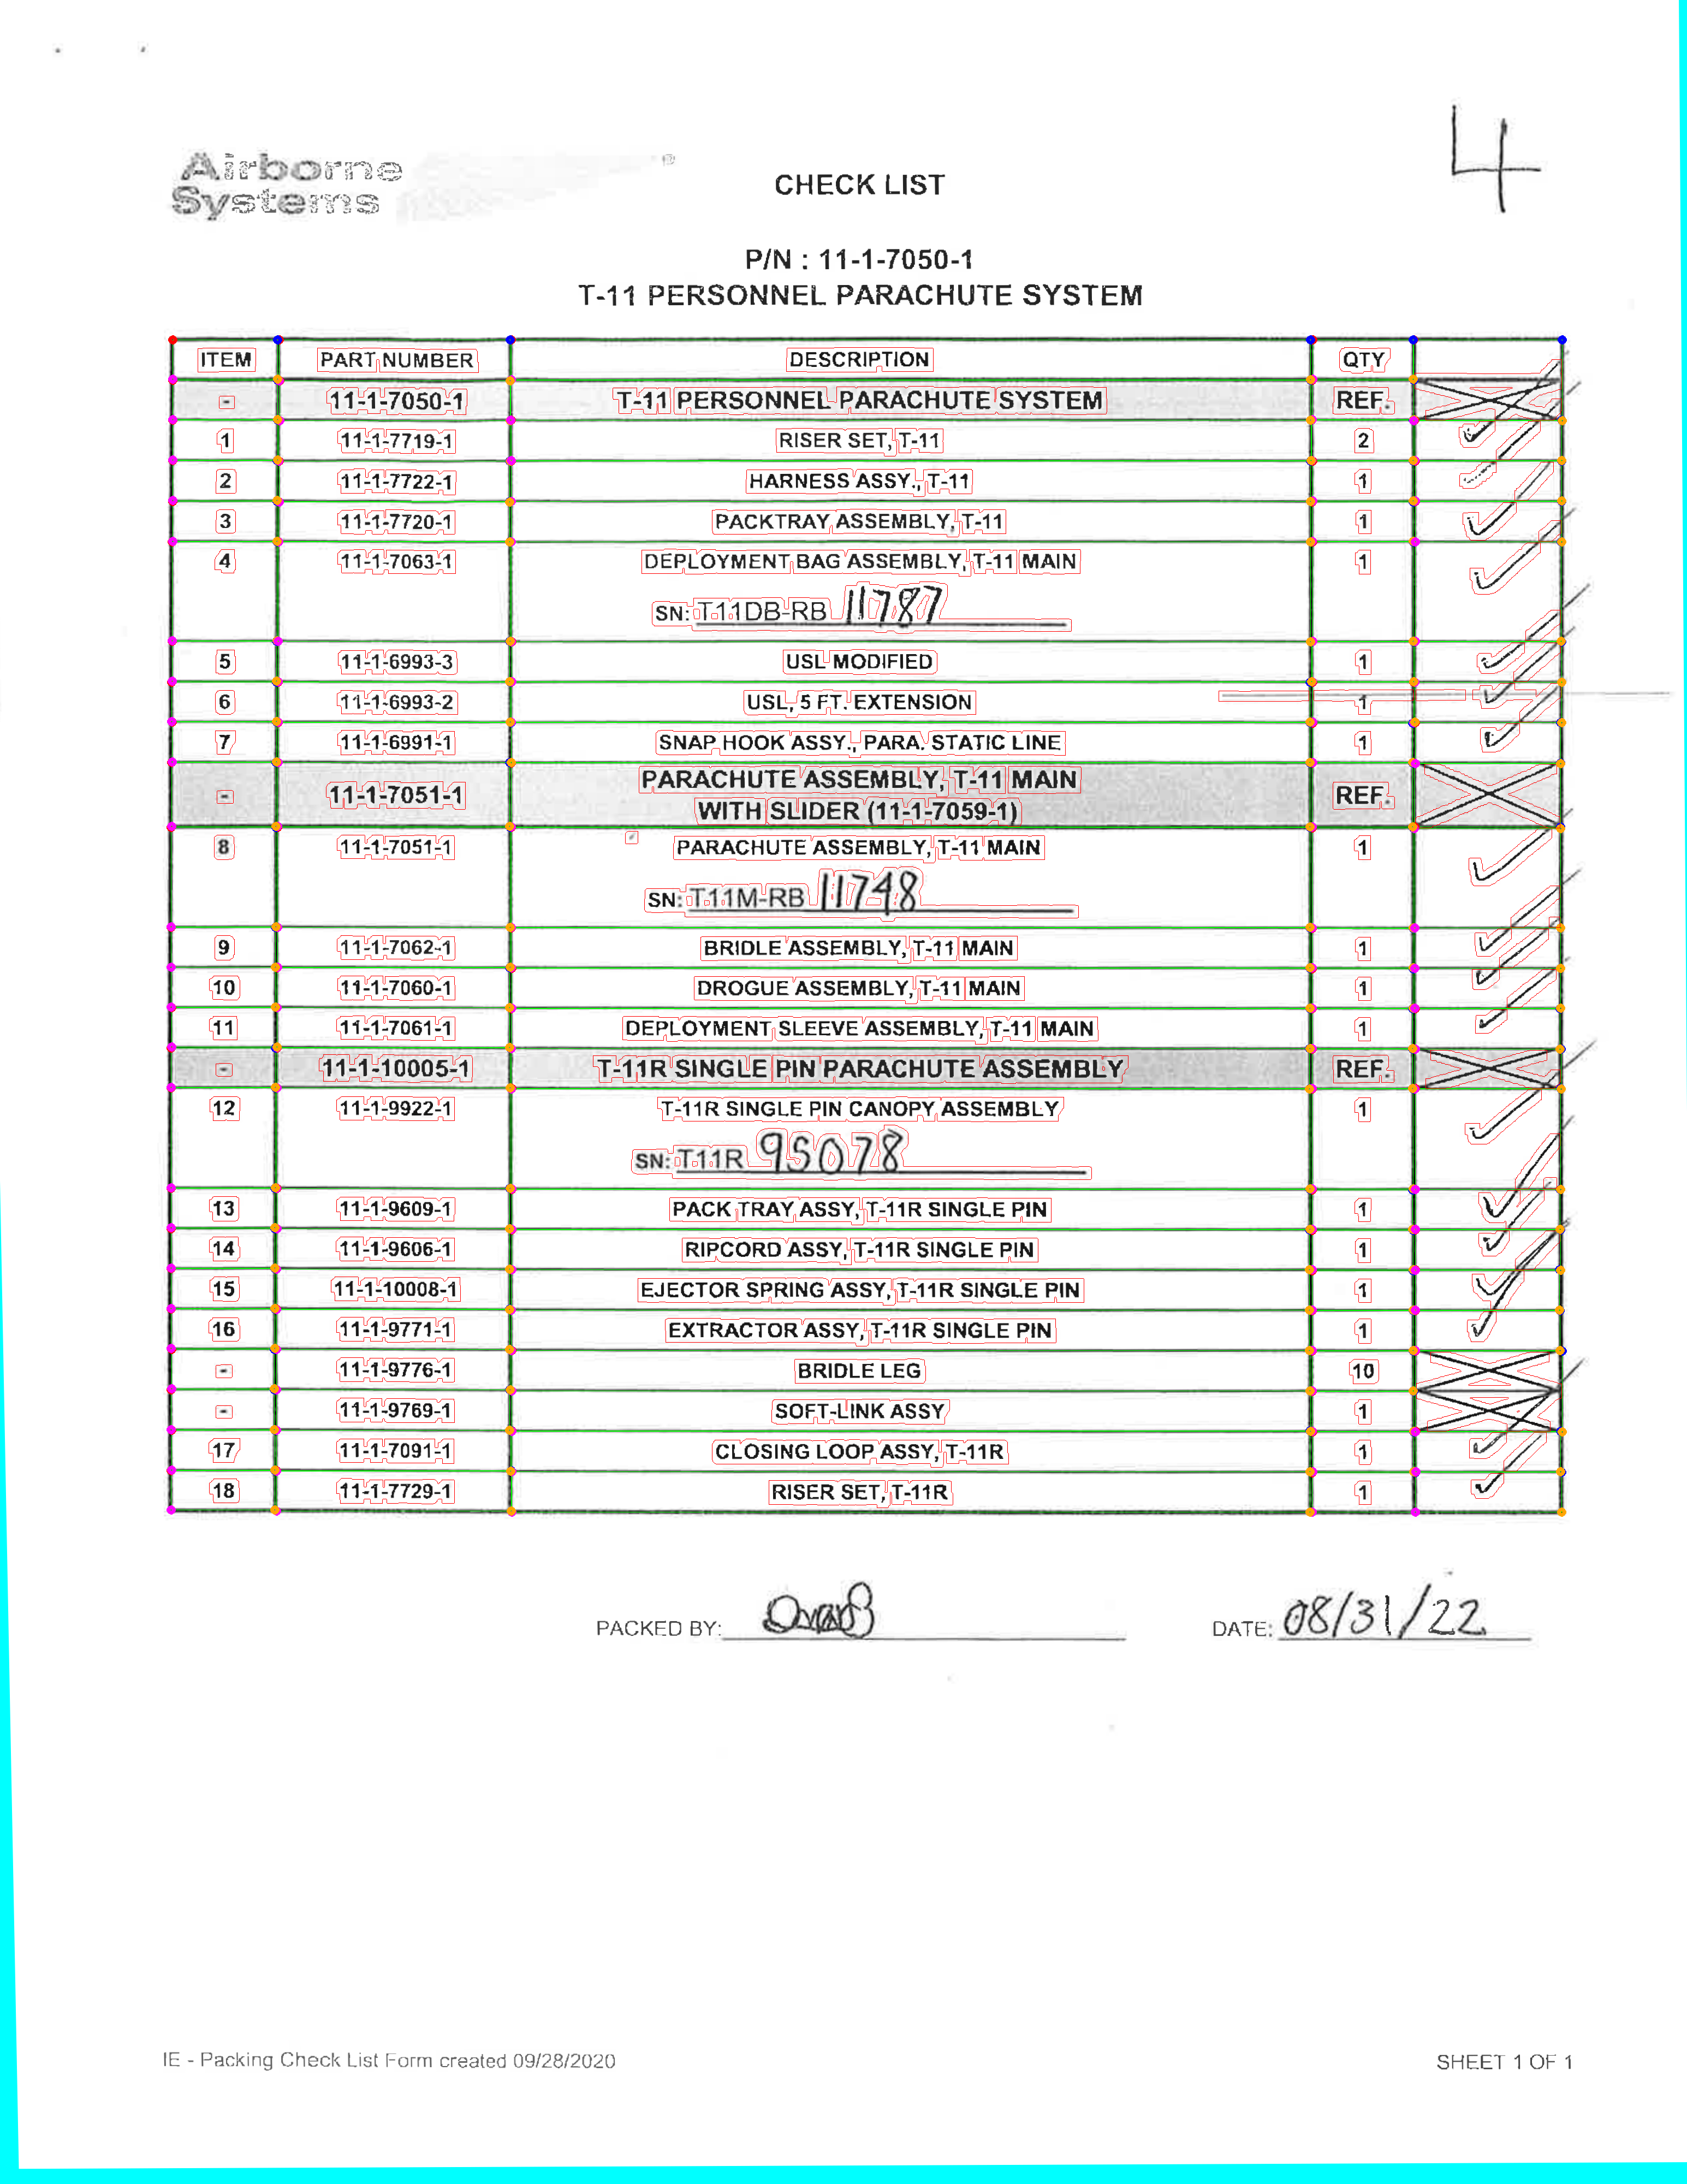 4
Airborne
Systems
®
CHECK LIST
P/N : 11-1-7050-1
T-11 PERSONNEL PARACHUTE SYSTEM
ITEM PART NUMBER DESCRIPTION QTY
- 11-1-7050-1 T-11 PERSONNEL PARACHUTE SYSTEM REF.
1 11-1-7719-1 RISER SET, T-11 2
2 11-1-7722-1 HARNESS ASSY., T-11 1
3 11-1-7720-1 PACKTRAY ASSEMBLY, T-11 1
4 11-1-7063-1 DEPLOYMENT BAG ASSEMBLY, T-11 MAIN 1
SN: T11DB-RB 11787
5 11-1-6993-3 USL MODIFIED 1
6 11-1-6993-2 USL, 5 FT. EXTENSION 1
7 11-1-6991-1 SNAP HOOK ASSY., PARA. STATIC LINE 1
- 11-1-7051-1 PARACHUTE ASSEMBLY, T-11 MAIN REF.
WITH SLIDER (11-1-7059-1)
8 11-1-7051-1 PARACHUTE ASSEMBLY, T-11 MAIN 1
SN: T11M-RB 11748
9 11-1-7062-1 BRIDLE ASSEMBLY, T-11 MAIN 1
10 11-1-7060-1 DROGUE ASSEMBLY, T-11 MAIN 1
11 11-1-7061-1 DEPLOYMENT SLEEVE ASSEMBLY, T-11 MAIN 1
- 11-1-10005-1 T-11R SINGLE PIN PARACHUTE ASSEMBLY REF.
12 11-1-9922-1 T-11R SINGLE PIN CANOPY ASSEMBLY 1
SN: T11R 95078
13 11-1-9609-1 PACK TRAY ASSY, T-11R SINGLE PIN 1
14 11-1-9606-1 RIPCORD ASSY, T-11R SINGLE PIN 1
15 11-1-10008-1 EJECTOR SPRING ASSY, T-11R SINGLE PIN 1
16 11-1-9771-1 EXTRACTOR ASSY, T-11R SINGLE PIN 1
- 11-1-9776-1 BRIDLE LEG 10
- 11-1-9769-1 SOFT-LINK ASSY 1
17 11-1-7091-1 CLOSING LOOP ASSY, T-11R 1
18 11-1-7729-1 RISER SET, T-11R 1
PACKED BY: DATE: 08/31/22
IE - Packing Check List Form created 09/28/2020 SHEET 1 OF 1